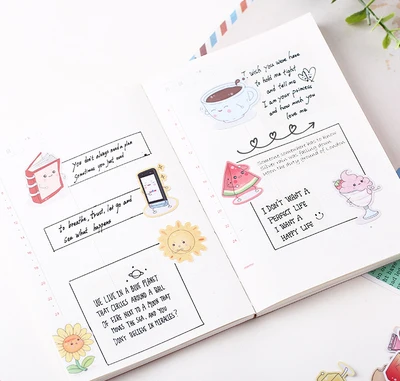 You don't always need a plan
sometimes you just need
to breathe, trust, let go and
see what happens
WE LIVE IN A BLUE PLANET
THAT CIRCLES AROUND A BALL
OF FIRE NEXT TO A MOON THAT
MOVES THE SEA, AND YOU
DON'T BELIEVE IN MIRACLES?
I wish you were here
to hold me tight
and tell me
I am your princess
and how much you
love me
I DON'T WANT A
PERFECT LIFE
I WANT A
HAPPY LIFE